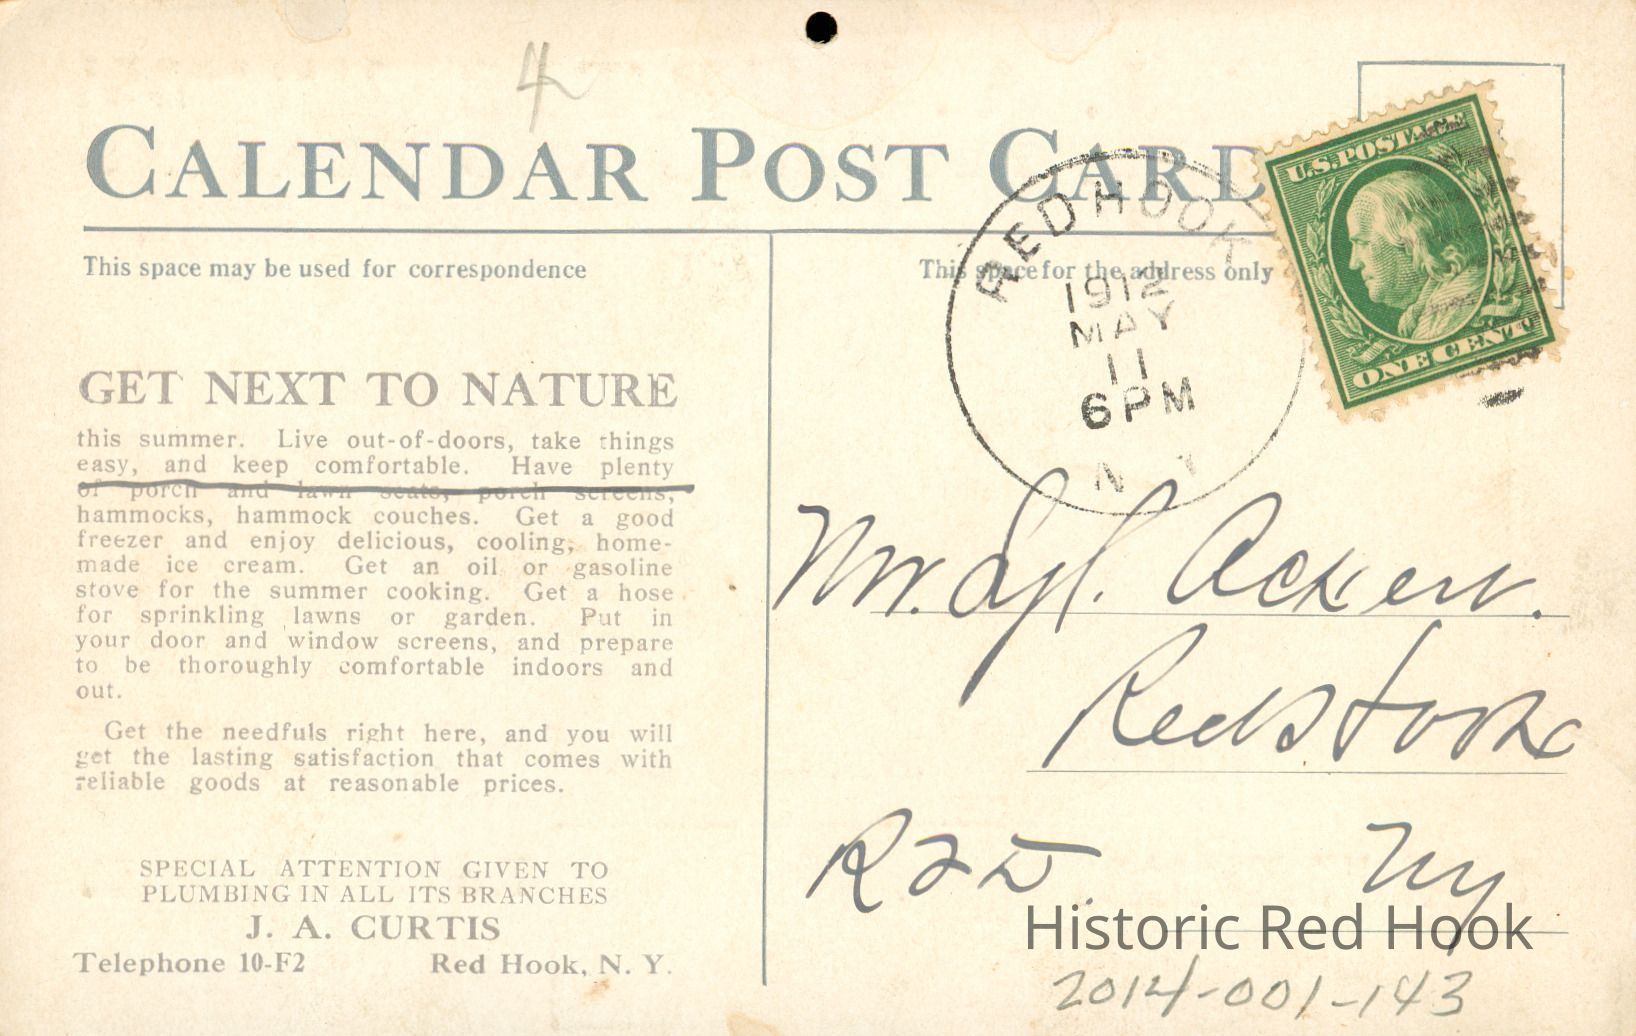 4
CALENDAR POST CARD
This space may be used for correspondence
This space for the address only
U.S. POSTAGE
ONE CENT
RED HOOK
1912
MAY
11
6 PM
N Y
GET NEXT TO NATURE
this summer. Live out-of-doors, take things
easy, and keep comfortable. Have plenty
of porch and lawn seats, porch screens,
hammocks, hammock couches. Get a good
freezer and enjoy delicious, cooling, home-
made ice cream. Get an oil or gasoline
stove for the summer cooking. Get a hose
for sprinkling lawns or garden. Put in
your door and window screens, and prepare
to be thoroughly comfortable indoors and
out.
Get the needfuls right here, and you will
get the lasting satisfaction that comes with
reliable goods at reasonable prices.
SPECIAL ATTENTION GIVEN TO
PLUMBING IN ALL ITS BRANCHES
J. A. CURTIS
Telephone 10-F2 Red Hook, N. Y.
Mr. Ackert.
Red Hook
NY
Historic Red Hook
2014-001-143